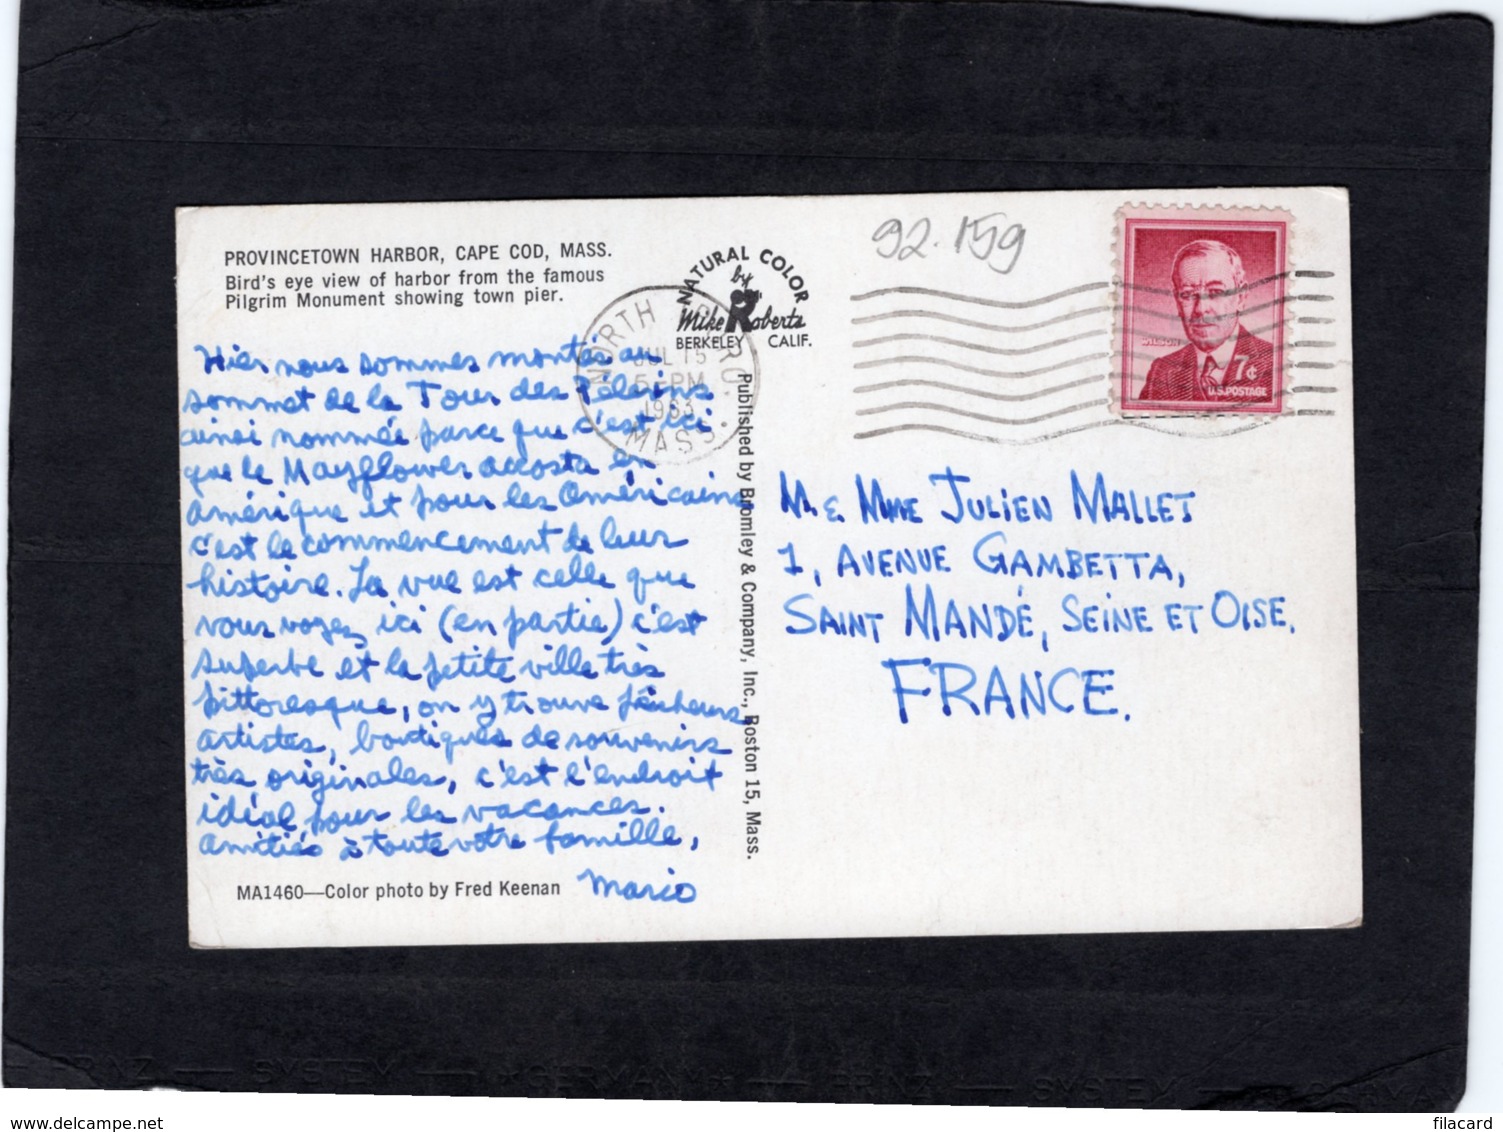 PROVINCETOWN HARBOR, CAPE COD, MASS.
Bird's eye view of harbor from the famous
Pilgrim Monument showing town pier.
NATURAL COLOR
by
Mike Roberts
BERKELEY CALIF.
92.159
NORTH
JUL 15
5-PM
1963
MASS.
WILSON
7¢
U.S. POSTAGE
Hier nous sommes montés au
sommet de la Tour des Pélerins
ainsi nommée parce que c'est ici
que le Mayflower accosta en
amérique et pour les américains
c'est le commencement de leur
histoire. La vue est celle que
vous voyez ici (en partie) c'est
superbe et la petite ville très
pittoresque, on y trouve pêcheurs
artistes, boutiques de souvenirs
très originales, c'est l'endroit
idéal pour les vacances.
amitiés à toute votre famille,
Mario
MA1460—Color photo by Fred Keenan
Published by Bromley & Company, Inc., Boston 15, Mass.
M. & MME JULIEN MALLET
1, AVENUE GAMBETTA,
SAINT MANDÉ, SEINE ET OISE.
FRANCE.
PRINZ — SYSTEM — *GERMANY* — PRINZ — SYSTEM
www.delcampe.net
filacard